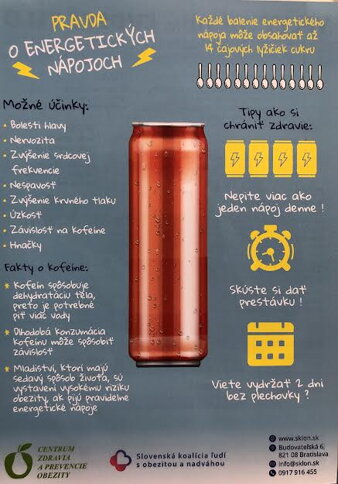 PRAVDA
O ENERGETICKÝCH
NÁPOJOCH
Každé balenie energetického
nápoja môže obsahovať až
14 čajových lyžičiek cukru
Možné účinky:
Bolesti hlavy
Nervozita
Zvýšenie srdcovej
frekvencie
Nespavosť
Zvýšenie krvného tlaku
Úzkosť
Závislosť na kofeíne
Hnačky
Fakty o kofeíne:
Kofeín spôsobuje
dehydratáciu tela,
preto je potrebné
piť viac vody
Dlhodobá konzumácia
kofeínu môže spôsobiť
závislosť
Mladiství, ktorí majú
sedavý spôsob života, sú
vystavení vysokému riziku
obezity, ak pijú pravidelne
energetické nápoje
Tipy ako si
chrániť zdravie:
Nepite viac ako
jeden nápoj denne !
Skúste si dať
prestávku !
Viete vydržať 2 dni
bez plechovky ?
CENTRUM
ZDRAVIA
A PREVENCIE
OBEZITY
Slovenská koalícia ľudí
s obezitou a nadváhou
www.sklon.sk
Budovateľská 6,
821 08 Bratislava
info@sklon.sk
0917 916 455